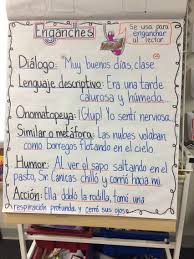 Enganches
Se usa para
enganchar
al lector
Diálogo: "Muy buenos días, clase
Lenguaje descriptivo: Era una tarde
calurosa y húmeda.
Onomatopeya: ¡Glup! Yo sentí nerviosa.
Similar o metáfora: Las nubes volaban
como borregos flotando en el cielo.
Humor: Al ver el sapo saltando en el
pasto, Sr. Canicas chilló y corrió hacia mi.
Acción: Ella dobló la rodilla, tomó una
respiración profunda y cerró sus ojos.